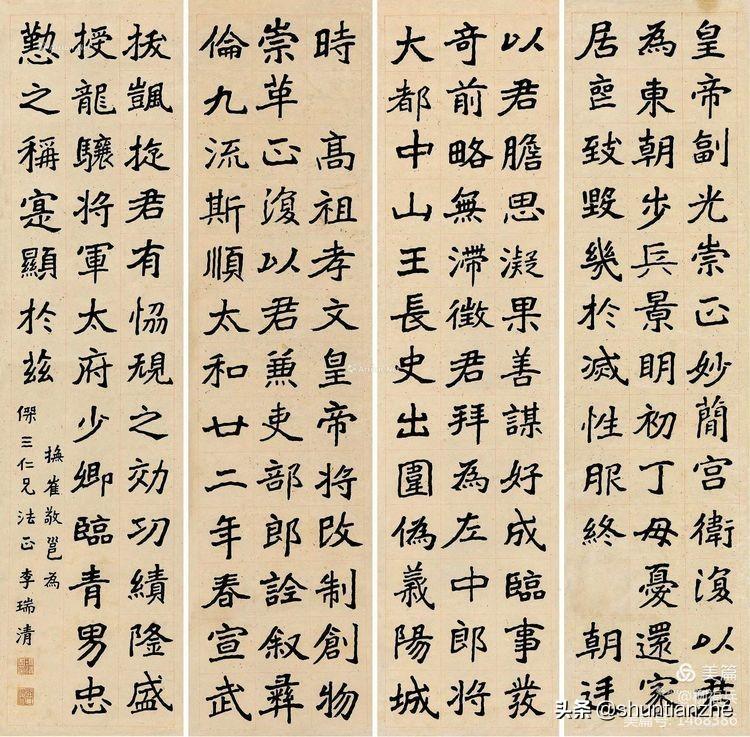 皇帝副光崇正妙簡宮衛復以君
為東朝步兵景明初丁母憂還家
居喪致毀幾於滅性服終朝廷
以君膽思凝果善謀好成臨事發
奇前略無滯徵君拜為左中郎將
大都中山王長史出圍偽義陽城
時高祖孝文皇帝將改制創物
崇革正復以君兼吏部郎詮敘彝
倫九流斯順太和廿二年春宣武
拔颽旋君有協規之効功績隆盛
授龍驤將軍太府少卿臨青男忠
懃之稱寔顯於茲
橅崔敬邕為
傑三仁兄法正 李瑞清
美篇
头条 @shuntianzhe